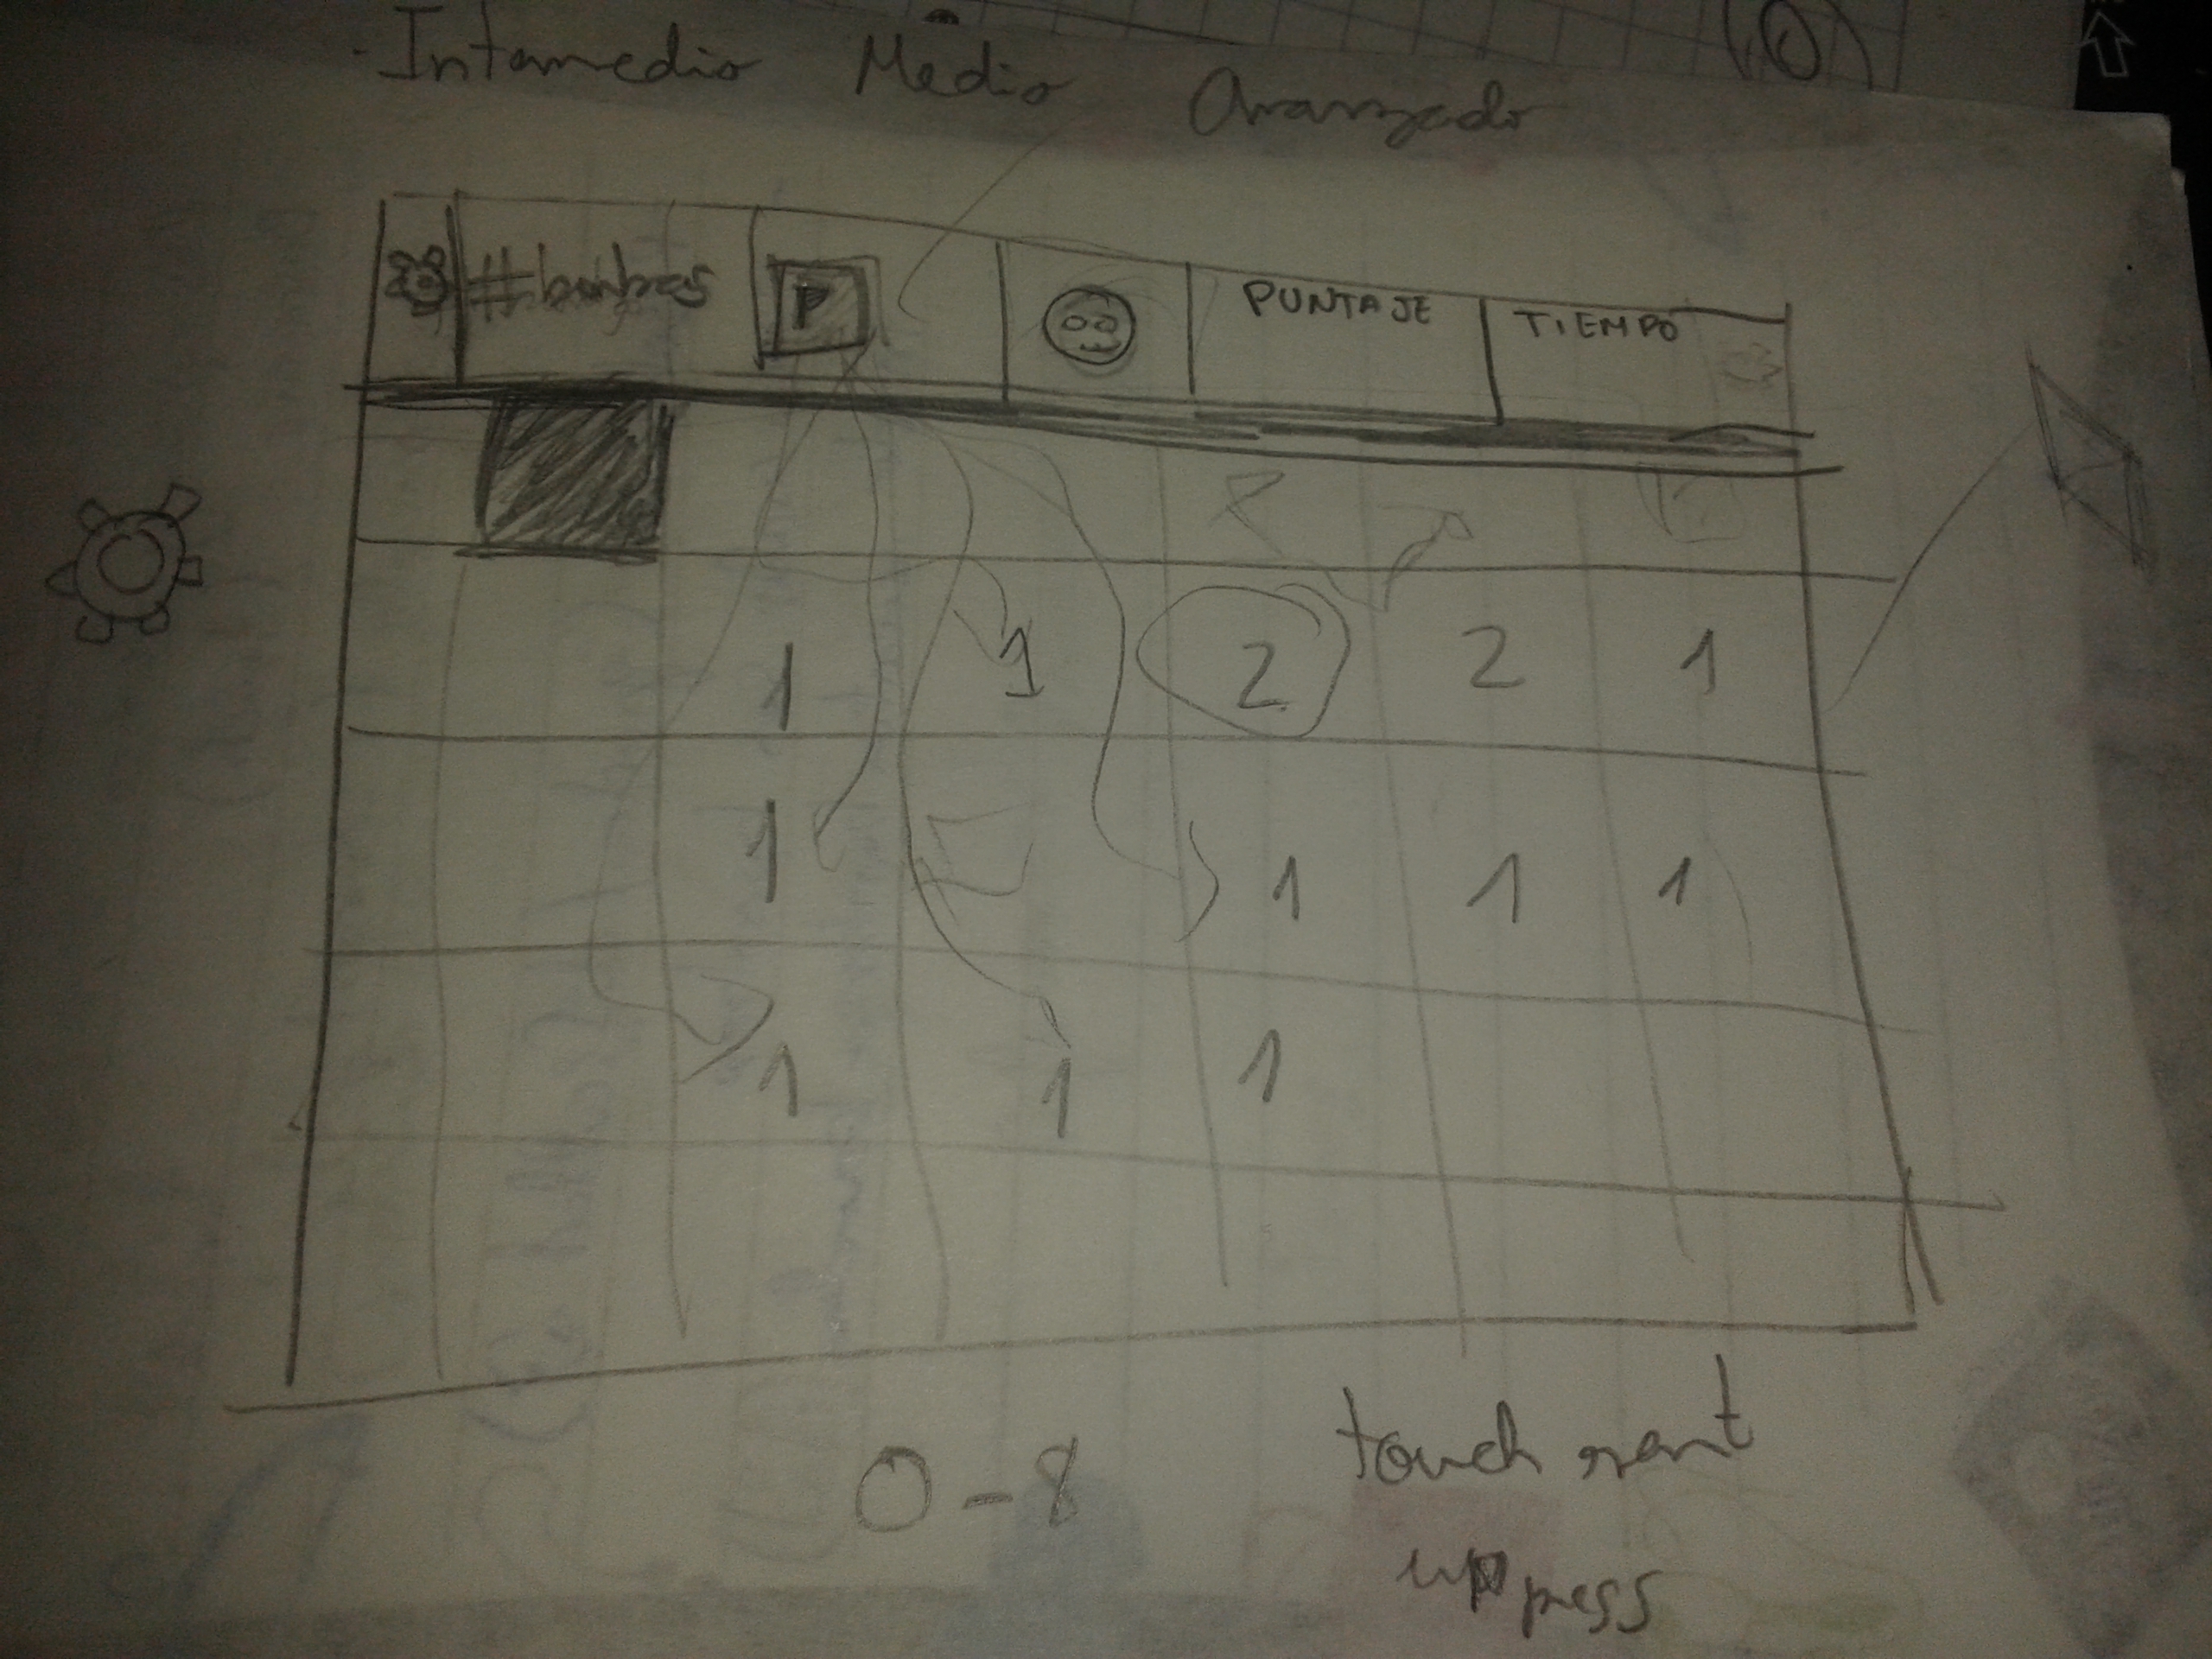 Intermedio Medio Avanzado
#bombas P PUNTAJE TIEMPO
1 1 2 2 1
1 1 1 1
1 1 1
0-8 touch event
up press